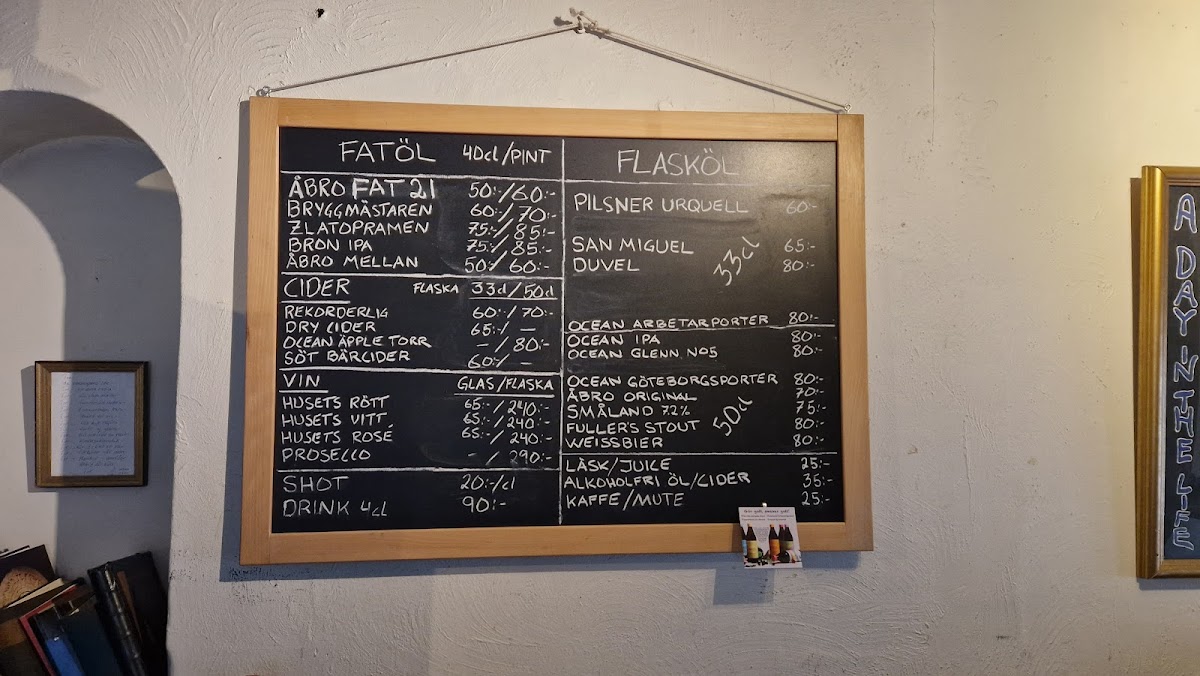 FATÖL 40cl/PINT
ÅBRO FAT 21 50:-/60:-
BRYGGMÄSTAREN 60:-/70:-
ZLATOPRAMEN 75:-/85:-
BRON IPA 75:-/85:-
ÅBRO MELLAN 50:-/60:-
CIDER FLASKA 33cl/50cl
REKORDERLIG 60:-/70:-
DRY CIDER 65:-/—
OCEAN ÄPPLE TORR -/80:-
SÖT BÄRCIDER 60:-/—
VIN GLAS/FLASKA
HUSETS RÖTT 65:-/240:-
HUSETS VITT 65:-/240:-
HUSETS ROSÉ 65:-/240:-
PROSECCO -/290:-
SHOT 20:-/cl
DRINK 4cl 90:-
FLASKÖL
PILSNER URQUELL 60:-
SAN MIGUEL 65:-
DUVEL 80:-
33cl
OCEAN ARBETARPORTER 80:-
OCEAN IPA 80:-
OCEAN GLENN NO5 80:-
OCEAN GÖTEBORGSPORTER 80:-
ÅBRO ORIGINAL 70:-
SMÅLAND 7.2% 75:-
FULLER'S STOUT 80:-
WEISSBIER 80:-
50cl
LÄSK/JUICE 25:-
ALKOHOLFRI ÖL/CIDER 35:-
KAFFE/MUTE 25:-
A DAY IN THE LIFE